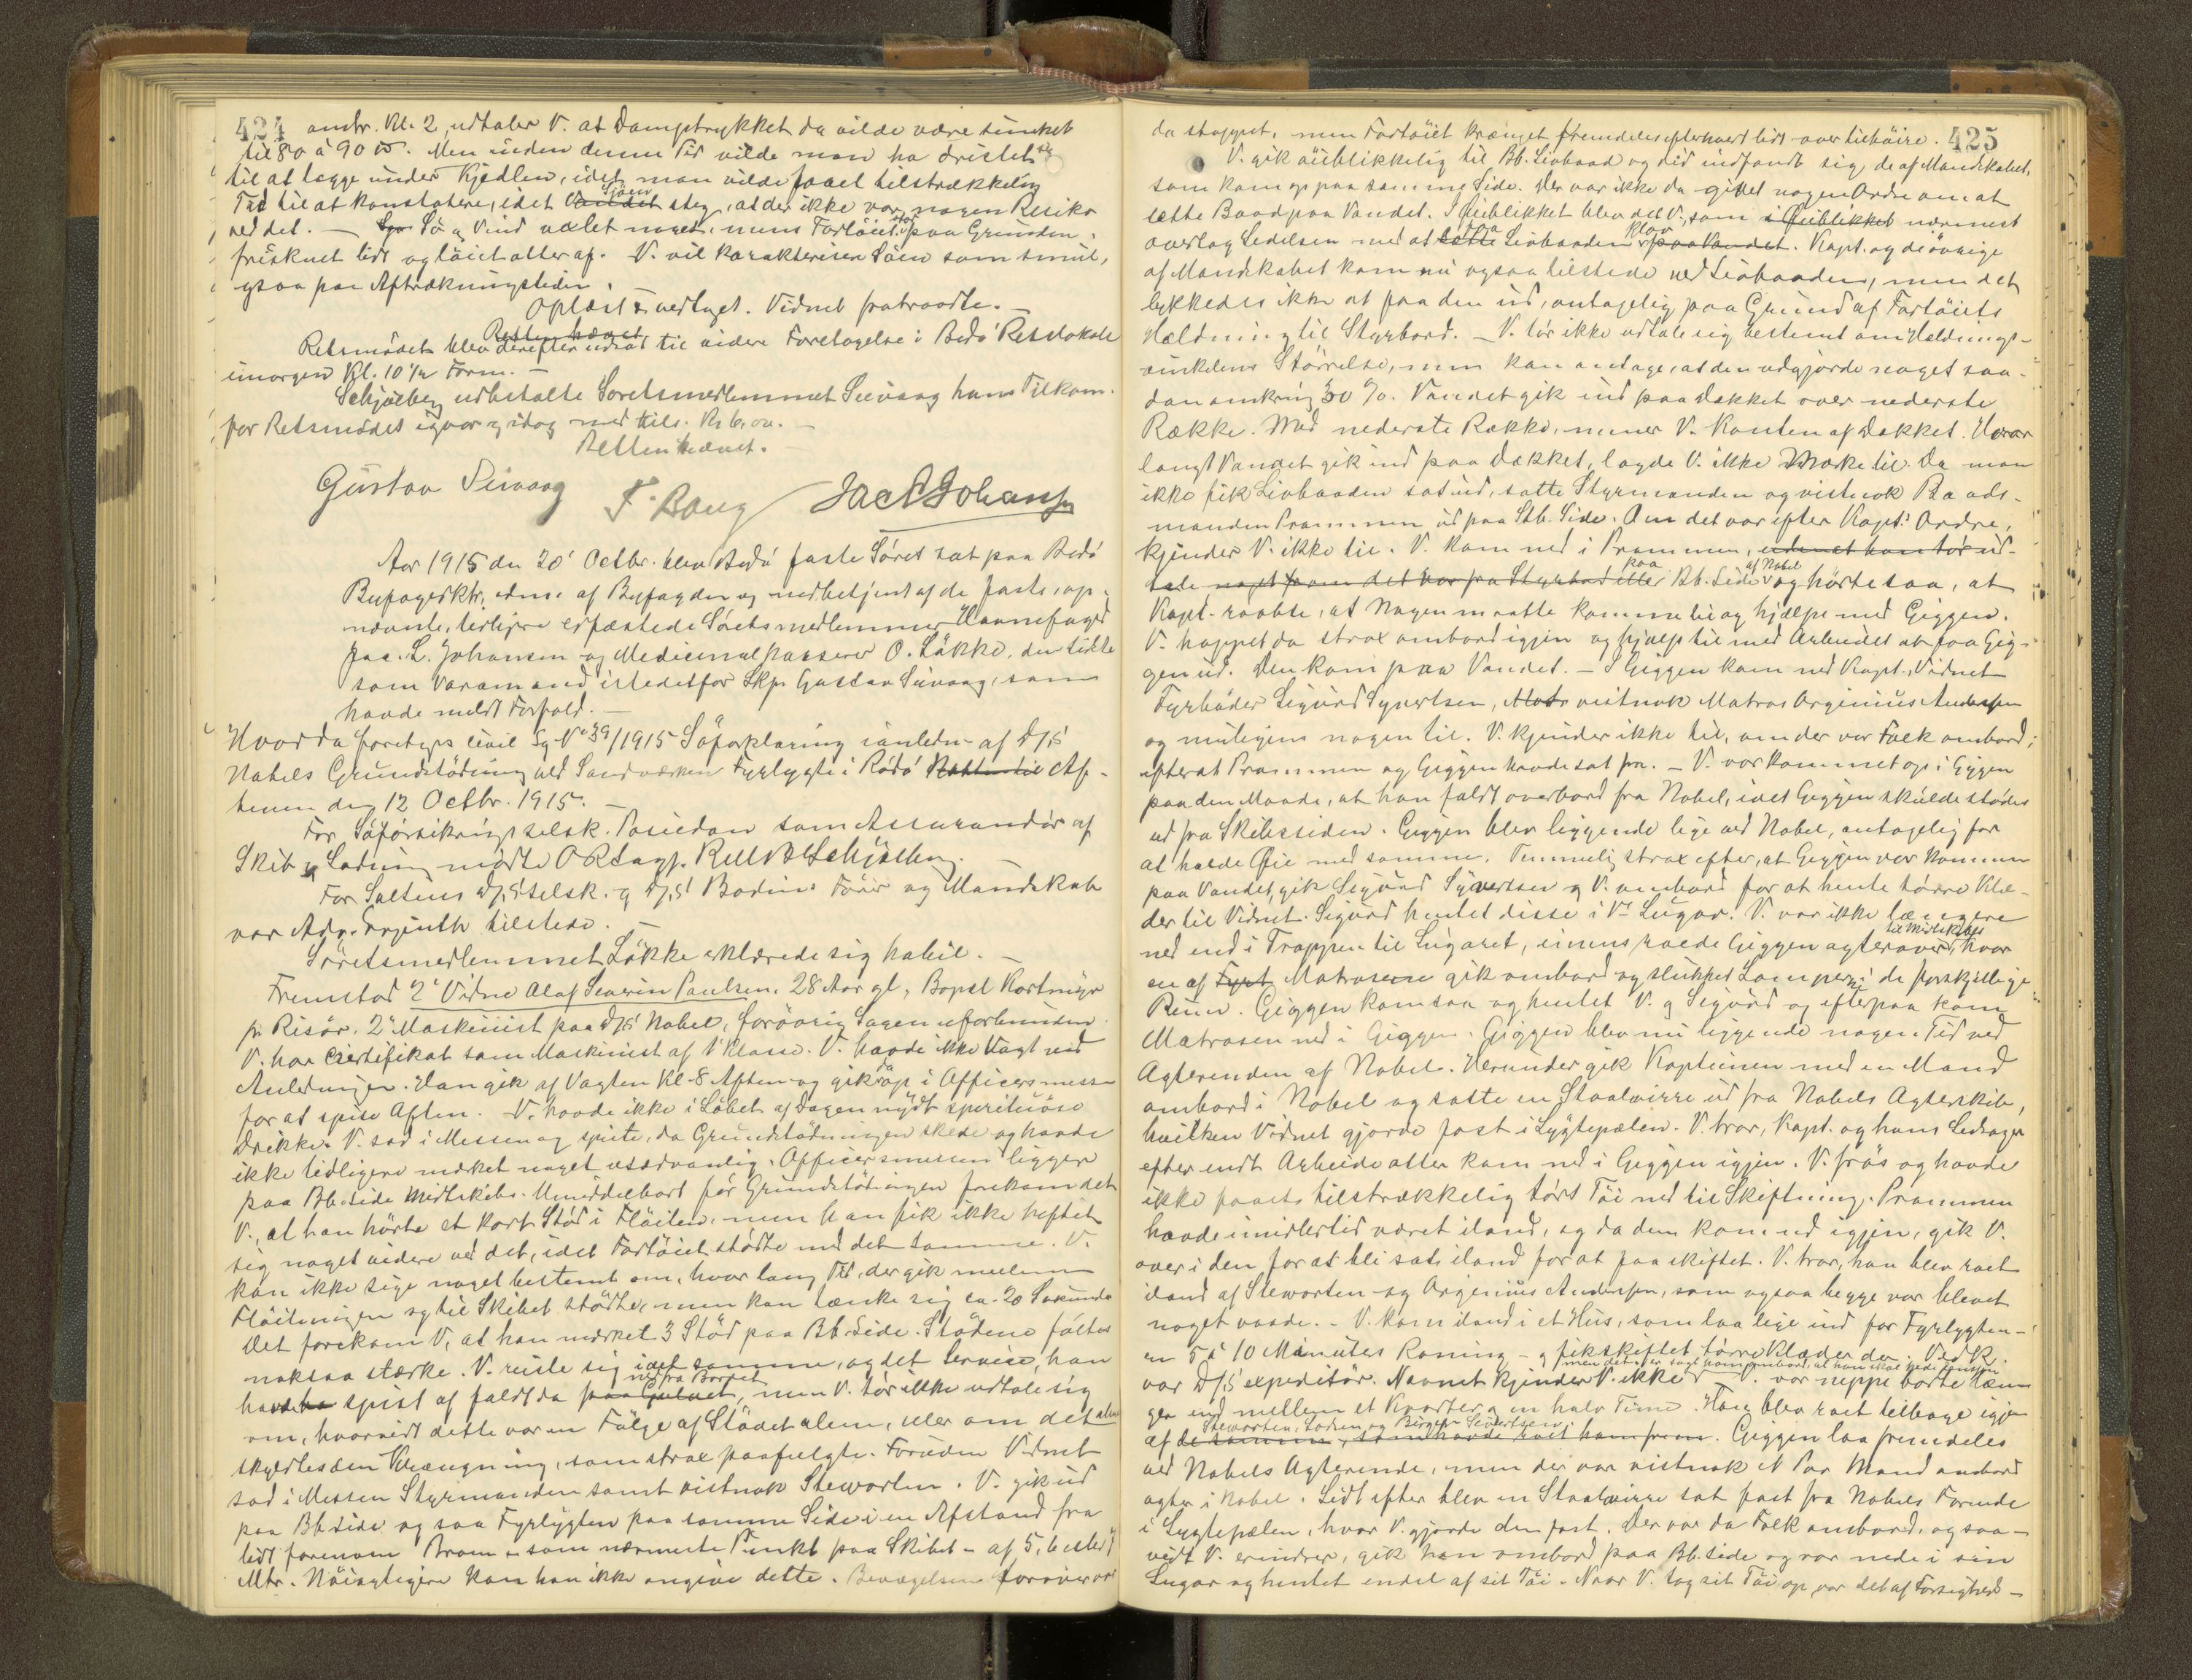 424
ombr. Kl. 2, udtaler V. at Damptrykket da vilde være sunket
til 80 à 90 ℔. Men inden denne Tid vilde man ha dristet sig
til at lægge under Kjedlen, idet man vilde faaet tilstrækkelig
Tid til at konstatere, idet Vandet Sjøen steg, at der ikke var nogen Risiko
ved det. — Sjø og Vind øket noget, mens Fartøiet stod paa Grunden,
frisknet lidt og løiet atter af. V. vil karakterisere Søen som smul,
ogsaa paa Aftrækningstiden.
Oplæst & vedtaget. Vidnet fratraadte. —
Retten hævet
Retsmødet blev derefter udsat til videre Foretagelse i Bodø Retslokale
imorgen Kl. 10 ½ Form. —
Schjølberg udbetalte Søretsmedlemmet Sivaag hans Tilkom.
for Retsmødet igaar og idag med tils. Kr. 6,00. —
Retten hævet. —
Gustav Sivaag F. Bang Jac L Johansen
Aar 1915 den 20' Octbr. blev Bodø faste Søret sat paa Bodø
Byfogedktr, adm. af Byfogden og medbetjent af de faste, op-
nævnte, tidligere edfæstede Søretsmedlemmer Havnefoged
Jac. L. Johansen og Medicinalkasserer O. Løkke, den sidste
som Varamand istedetfor Skpr. Gustav Sivaag, som
havde meldt Forfald. —
Hvorda foretoges civil Sg. № 39/1915 Søforklaring i anledn. af D/S
Nobels Grundstødning ved Sandværsken Fyrlygte i Rødø Natten til Af-
tenen den 12 Octbr. 1915. —
For Søforsikringsselsk. Poseidon som Assurandør af
Skib og Ladning mødte ORsagf. Schjølberg. —
For Saltens D/S selsk. og D/S Bodin: Fører og Mandskab
var Adv. tilstede. —
Søretsmedlemmet Løkke erklærede sig habil. —
Fremstod 2' Vidne Olaf Severin Paulsen, 28 Aar gl., Bopæl Kortmyr
pr. Risør. 2' Maskinist paa D/S Nobel, forøvrig Sagen uforbunden.
V. har Certifikat som Maskinist af 1' Klasse. V. havde ikke Vagt ved
Anledningen. Han gik af Vagten Kl. 8 Aften og gik da op i Officersmessen
for at spise Aften. V. havde ikke i Løbet af Dagen nydt spirituøse
Drikke. V. sad i Messen og spiste, da Grundstødningen skede og havde
ikke tidligere mærket noget usædvanlig. Officersmessen ligger
paa Bb. Side Midtskibs. Umiddelbart før Grundstødningen forekom det
V., at han hørte et kort Stød i Fløiten, men han fik ikke heftet
sig noget videre ved det, idet Fartøiet stødte med det samme. V.
kan ikke sige noget bestemt om, hvor lang Tid, der gik mellem
Fløitningen og til Skibet stødte, men kan tænke sig ca. 20 Sekunder
Det forekom V, at han mærket 3 Stød paa Bb. Side. Stødene føltes
noksaa stærke. V. reiste sig idet samme, og det Service, han
havde spist af faldt da paa Gulvet ned fra Bordet, men V. tør ikke udtale sig
om, hvorvidt dette var en Følge af Stødet alene, eller om det alene
skyldtes den Krængning, som strax paafulgte. Foruden Vidnet
sad i Messen Styrmanden samt vistnok Stewarten. V. gik ud
paa Bb. Side og saa Fyrlygten paa samme Side i en Afstand fra
lidt forenom Broen - som nærmeste Punkt paa Skibet - af 5, 6 eller 7
Mtr. Nøiagtigere kan han ikke angive dette. Bevægelsen forover var
425
da stoppet, men Fartøiet krænget fremdeles efterhvert lidt over til høire.
V. gik øieblikkelig til Bb. Livbaad og did indfandt sig de af Mandskabet,
som kom op paa samme Side. Der var ikke da givet nogen Ordre om at
sætte Baad paa Vandet. I Øieblikket blev det V., som i Øieblikket nærmest
overtog Ledelsen med at sætte Livbaaden klar paa Vandet. Kapt. og de øvrige
af Mandskabet kom nu ogsaa tilstede ved Livbaaden, men det
lykkedes ikke at faa den ud, antagelig paa Grund af Fartøiets
Hældning til Styrbord. — V. tør ikke udtale sig bestemt om Hældnings-
vinkelens Størrelse, men kan antage, at den udgjorde noget saa-
dan omkring 30 %. Vandet gik ind paa Dækket over nederste
Række. Med nederste Række, mener V. Kanten af Dækket. Hvor
langt Vandet gik ind paa Dækket, lagde V. ikke Mærke til. Da man
ikke fik Livbaaden sat ud, satte Styrmanden og vistnok Baads-
manden Prammen ud paa Stb. Side. Om det var efter Kapt.s Ordre,
kjender V. ikke til. V. kom ned i Prammen, uden at han tør ud-
tale noget om det var fra Styrbord eller paa Bb. Side af Nobel og hørte saa, at
Kapt. raabte, at Nogen maatte komme til og hjælpe med Giggen.
V. hoppet da strax ombord igjen og hjalp til med Arbeidet at faa Gig-
gen ud. Den kom paa Vandet. — I Giggen kom ned Kapt. Vidnet
Fyrbøder Sigurd Syvertsen, vistnok Matros Arginius Andersen
og muligens nogen til. V. kjender ikke til, om der var Folk ombord,
efterat Prammen og Giggen havde sat fra. — V. var kommet op i Giggen
paa den Maade, at han faldt overbord fra Nobel, idet Giggen skulde stødes
ud fra Skibssiden. Giggen blev liggende lige ved Nobel, antagelig for
at holde Øie med samme. Temmelig strax efter, at Giggen var kommen
paa Vandet, gik Sigurd Syvertsen og V. ombord for at hente tørre Klæ-
der til Vidnet. Sigurd hentet disse i V.s Lugar. V. var ikke længere
ned end i Trappen til Lugaret, imens roede Giggen agterover til Midtskibs, hvor
en af Matroserne gik ombord og slukket Lamper i de forskjellige
Rum. Giggen kom saa og hentet V. og Sigurd og efterpaa kom
Matrosen ned i Giggen. Giggen blev nu liggende nogen Tid ved
Agterenden af Nobel. Herunder gik Kapteinen med en Mand
ombord i Nobel og satte en Staalwirre ud fra Nobels Agterskib,
hvilken Vidnet gjorde fast i Lygtepælen. V. tror, Kapt. og hans Ledsager
efter endt Arbeide atter kom ned i Giggen igjen. V. frøs og havde
ikke faaet tilstrækkelig tørt Tøi ned til Skiftning. Prammen
havde imidlertid været iland, og da den kom ud igjen, gik V.
over i den, for at bli sat iland for at faa skiftet. V. tror, han blev roet
iland af Stewarten og Arginius Andersen, som ogsaa begge var blevet
noget vaade. — V. kom iland i et Hus, som laa lige ind for Fyrlygten —
en 5 à 10 Minuters Roning — og fik skiftet tørre Klæder der.
men det er sagt ham ombord, at han skal hede Jensen
var D/S expeditør. Navnet kjender V. ikke — V. var neppe borte læn-
ger end mellem et Kvarter og en halv Time. Han blev roet tilbage igjen
Stewarten, Lodsen og Birger Sivertsen
af de samme, som havde roet ham frem. Giggen laa fremdeles
ved Nobels Agterende, men der var vistnok et Par Mand ombord
agter i Nobel. Lidt efter blev en Staalwirre sat fast fra Nobels Forende
i Lygtepælen, hvor V. gjorde den fast. Der var da Folk ombord, og saa-
vidt V. erindrer, gik han ombord paa Bb. Side og var nede i sin
Lugar og hentet endel af sit Tøi. Naar V. tog sit Tøi op, var det af Forsigtigheds-